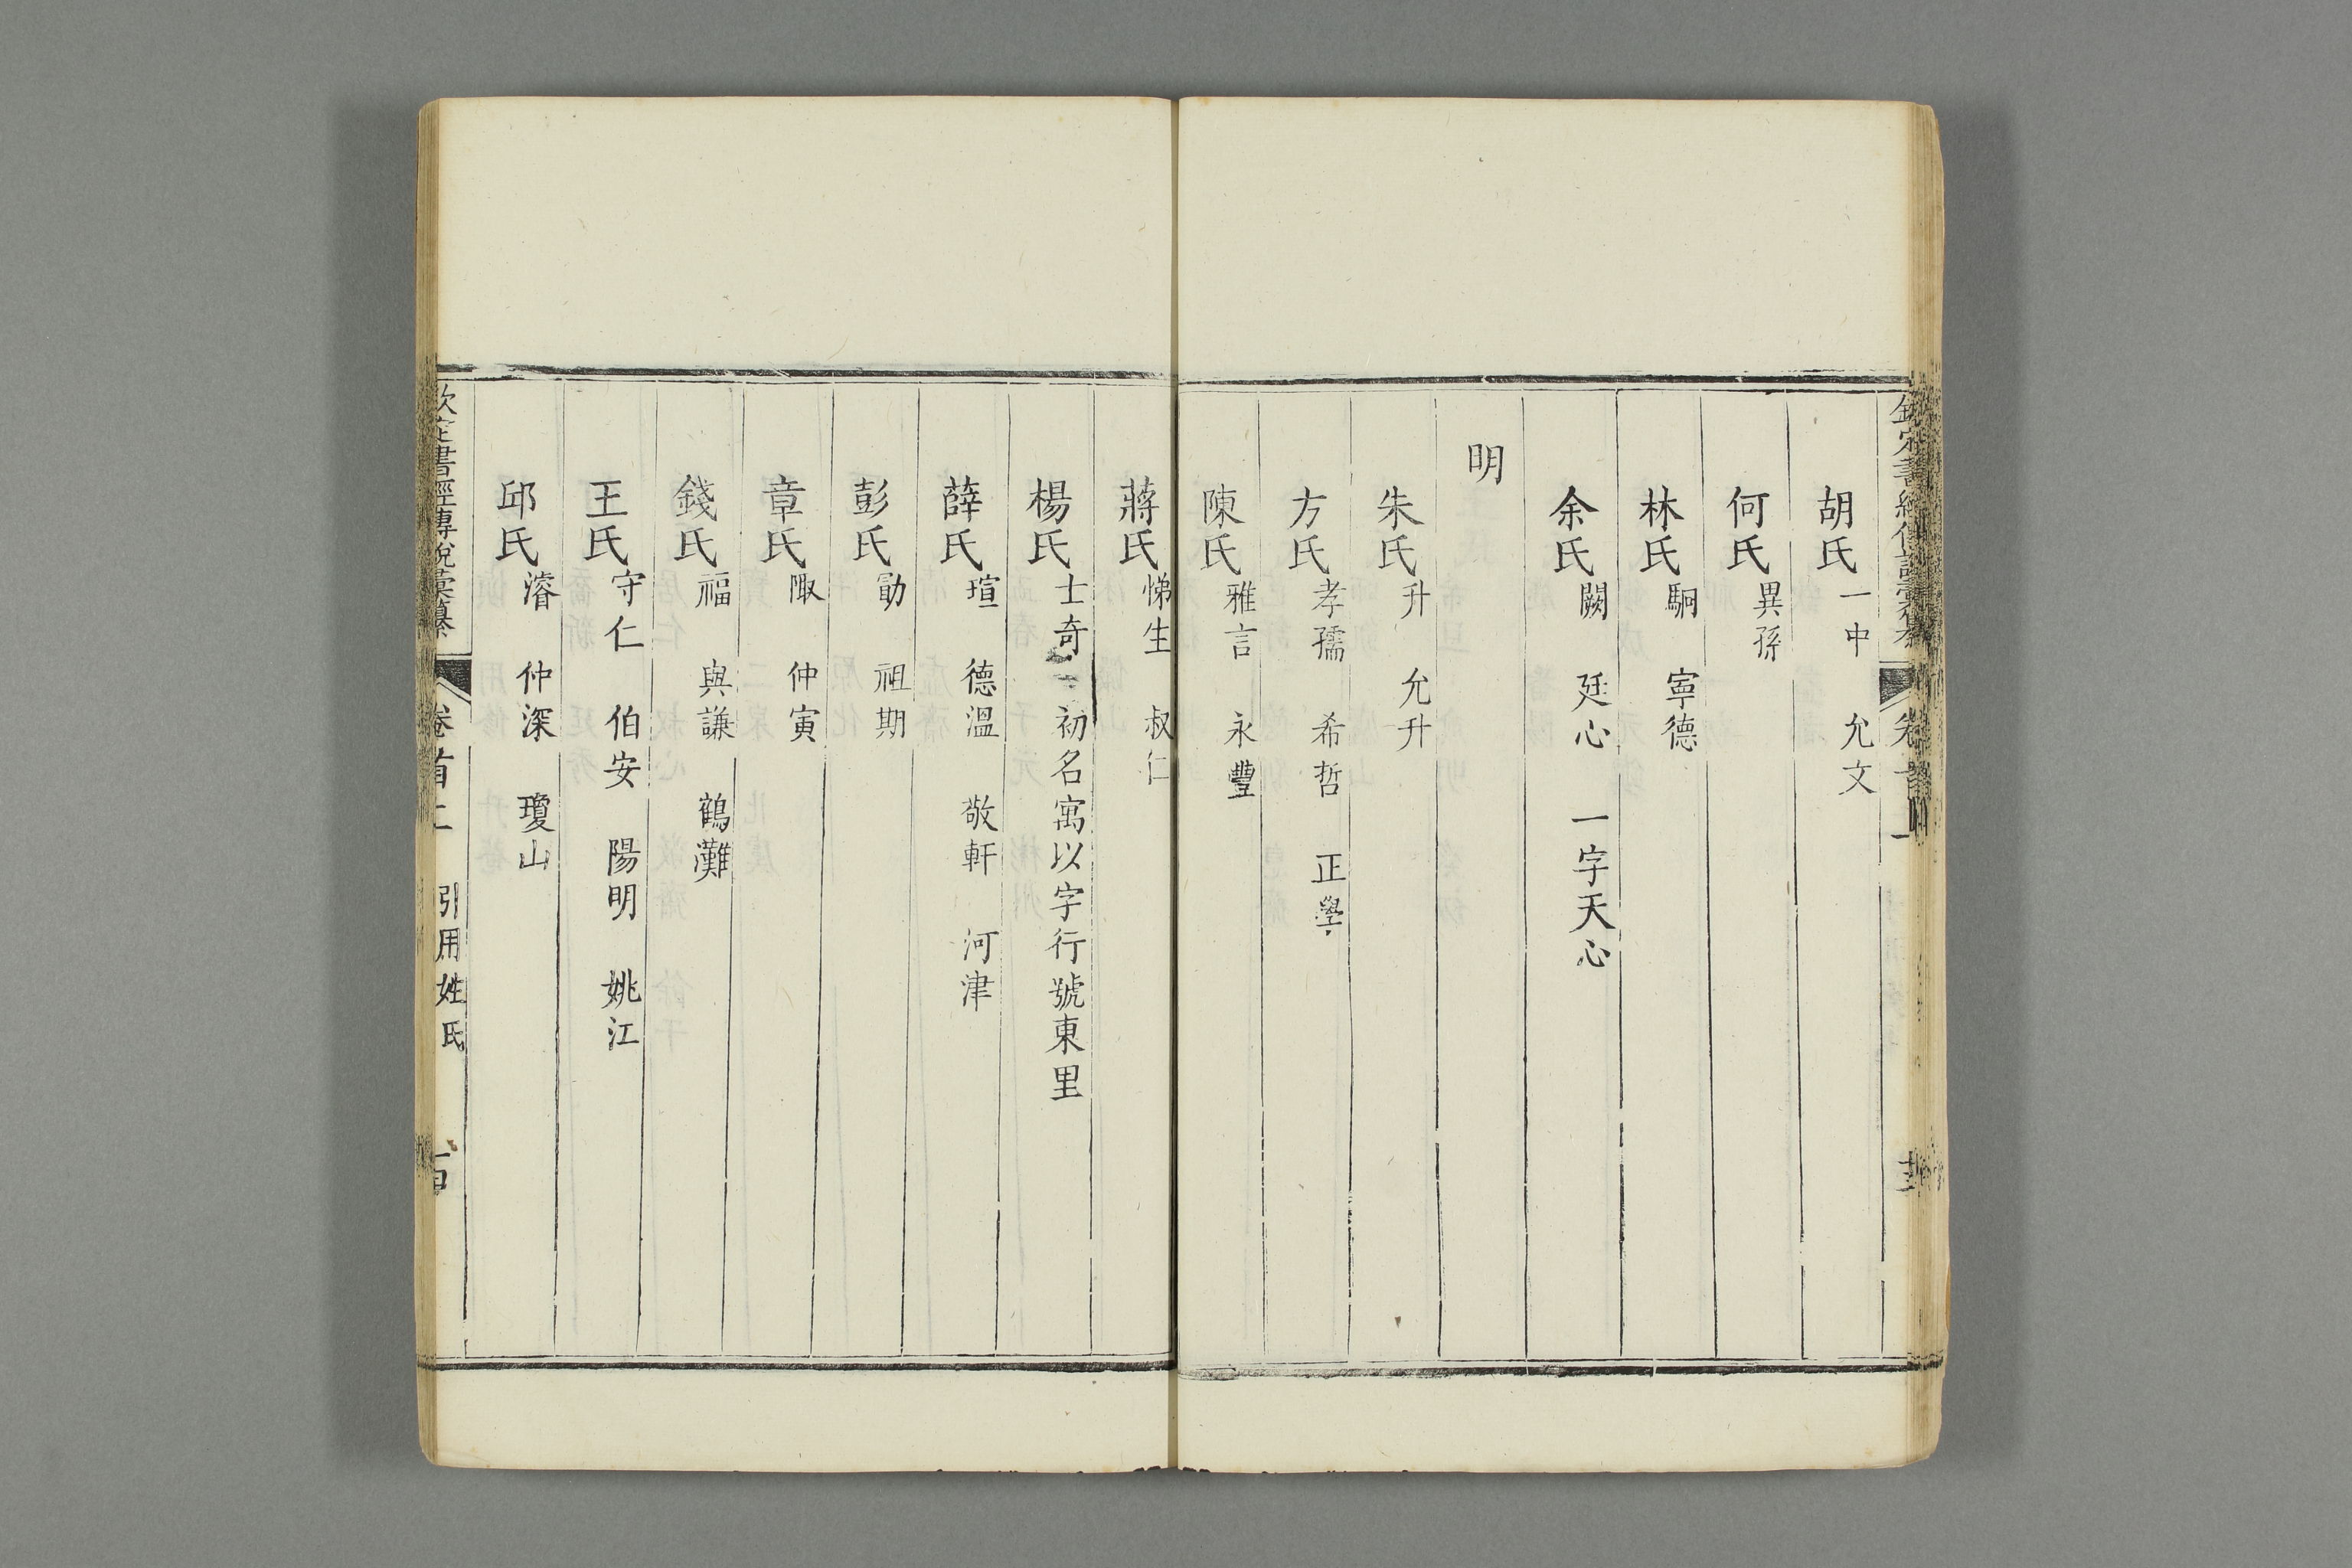 胡氏一中 允文
何氏異孫
林氏駉 寧德
余氏闕 廷心 一字天心
明
朱氏升 允升
方氏孝孺 希哲 正學
陳氏雅言 永豐
蔣氏悌生 叔仁
楊氏士奇 初名寓以字行號東里
薛氏瑄 德溫 敬軒 河津
彭氏勖 祖期
章氏陬 仲寅
錢氏福 與謙 鶴灘
王氏守仁 伯安 陽明 姚江
邱氏濬 仲深 瓊山
欽定書經傳說彙纂 卷首二 引用姓氏